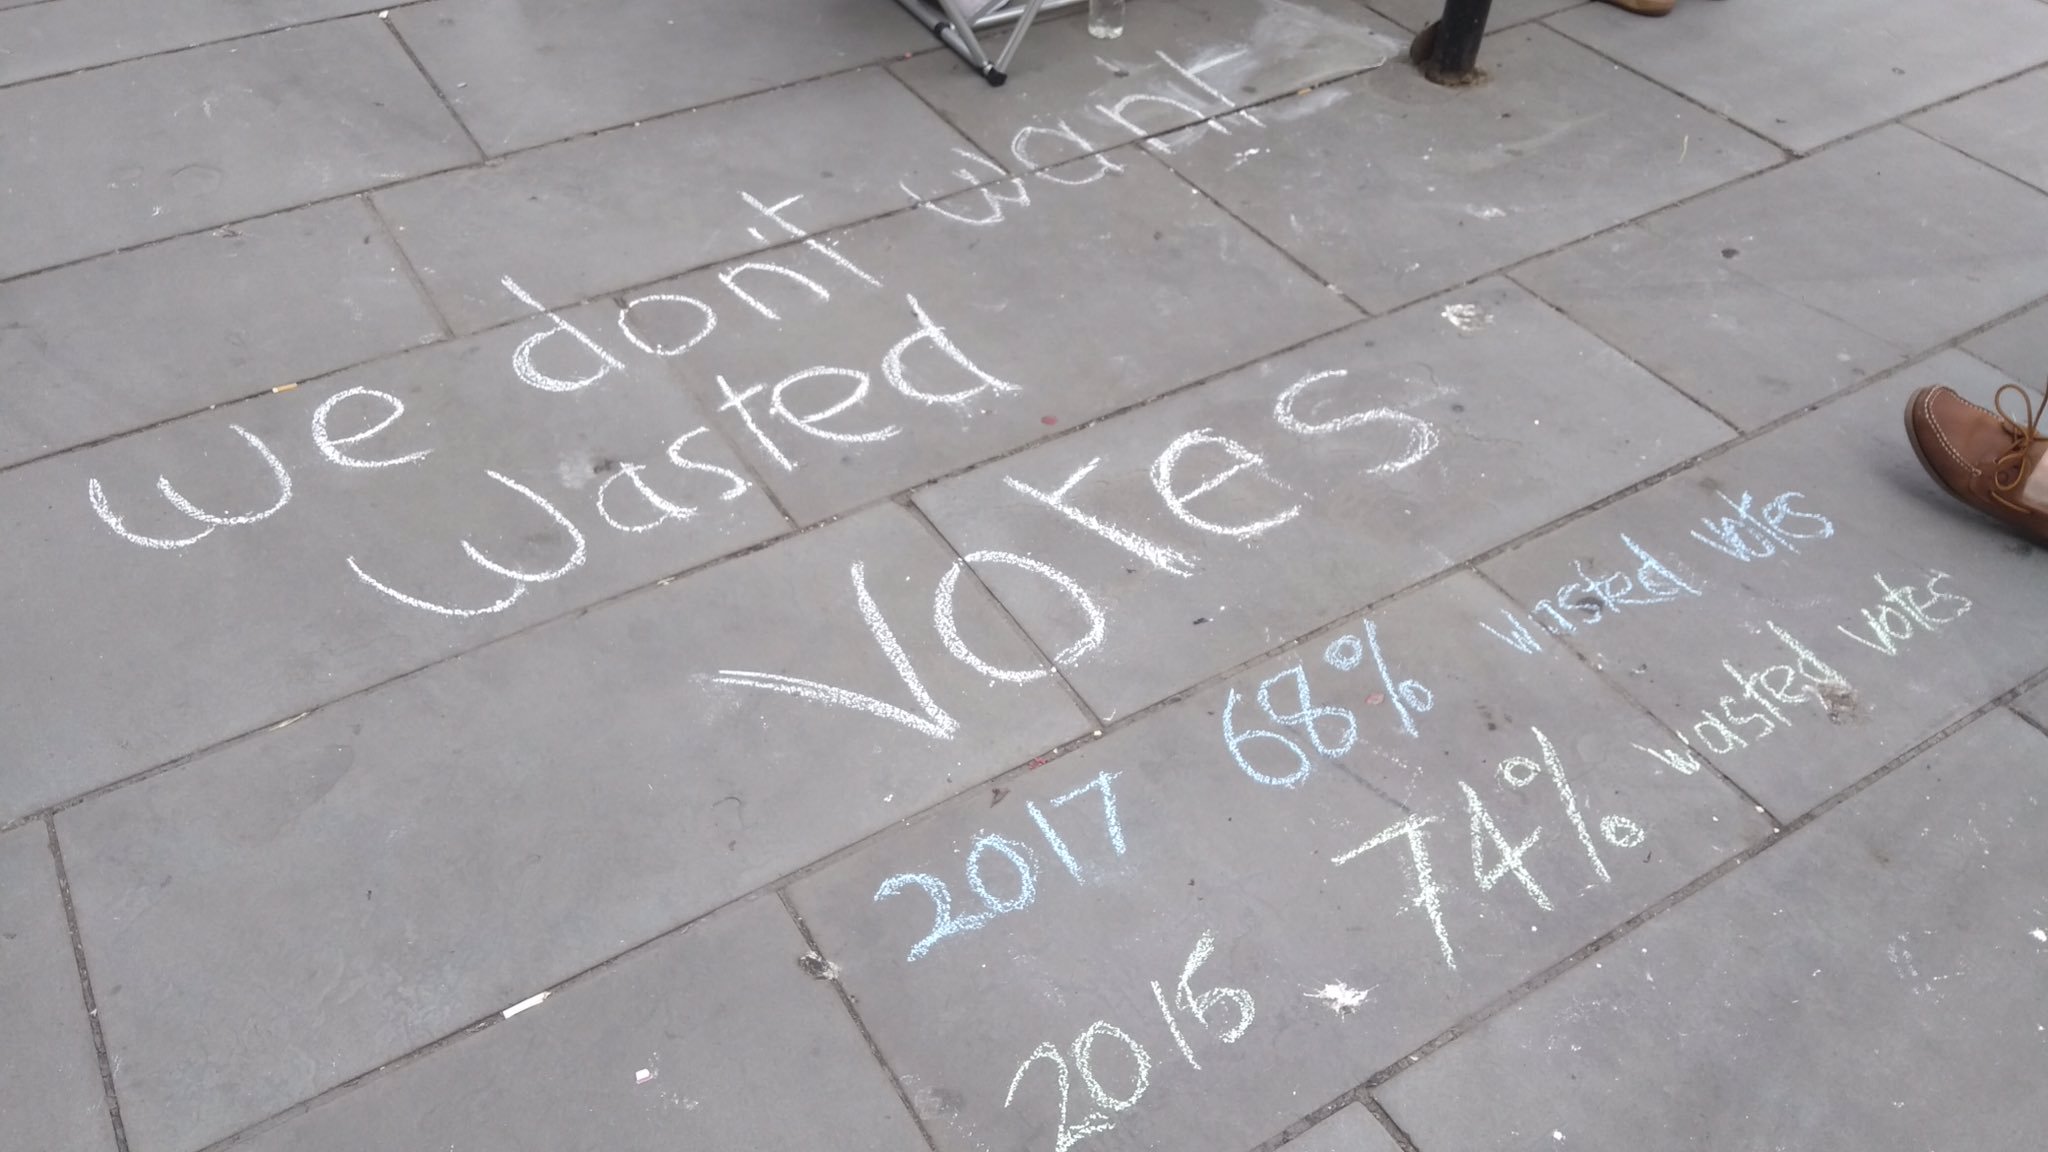 we don't want
wasted
votes
2017 68% wasted votes
2015 74% wasted votes